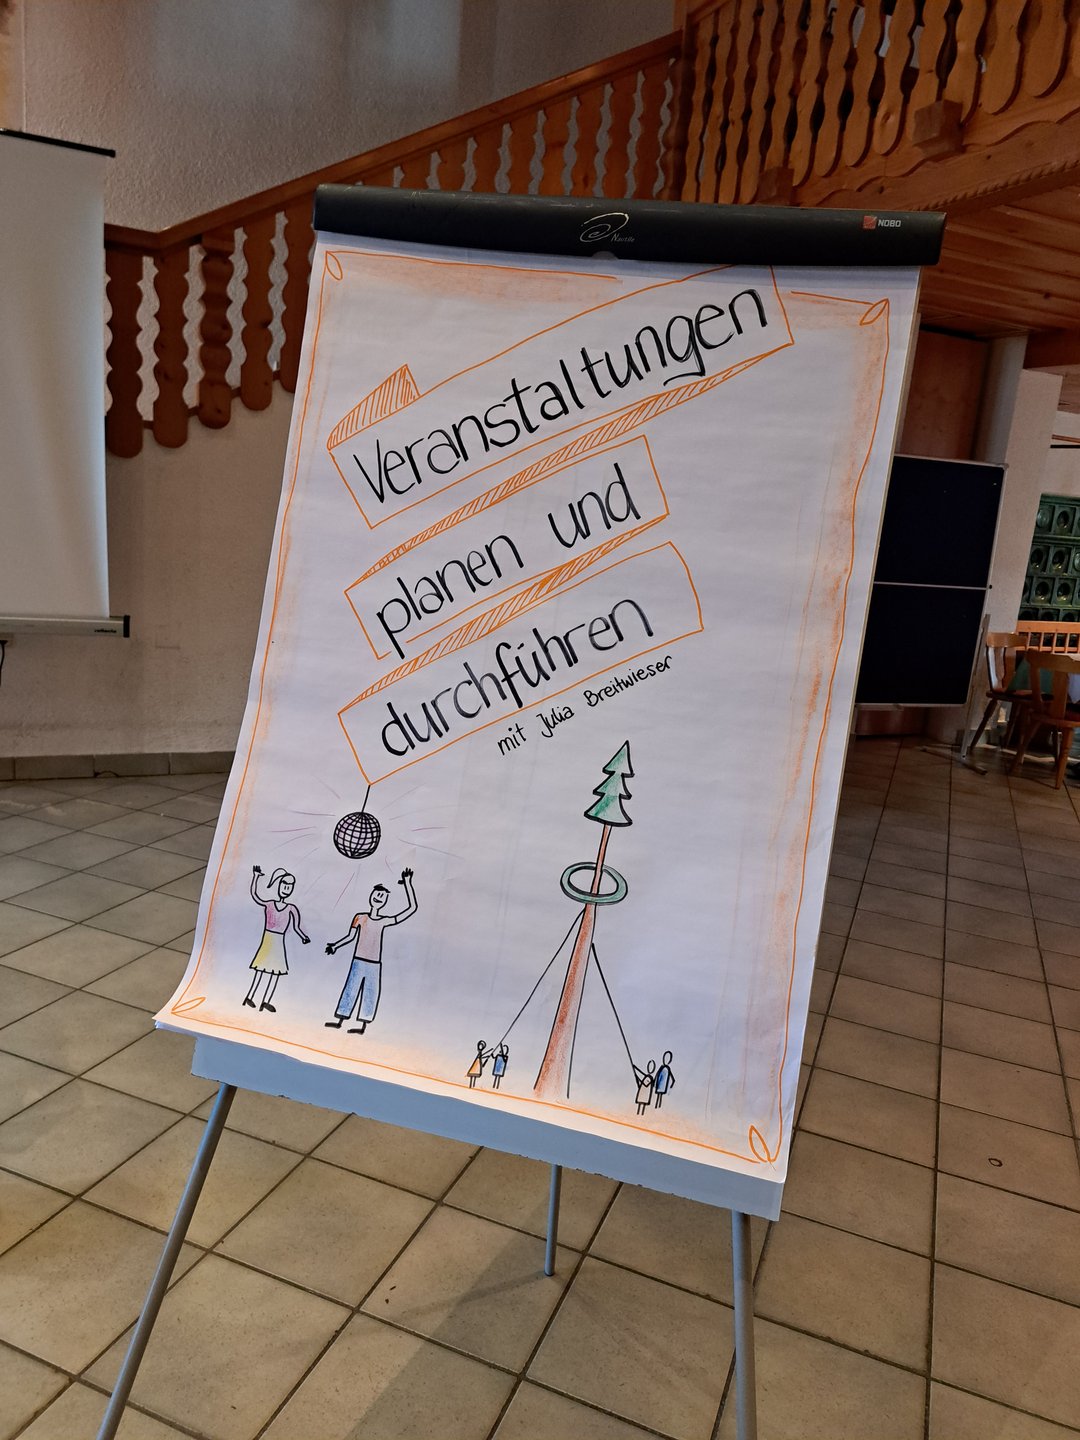 Nautile
NOBO
Veranstaltungen
planen und
durchführen
mit Julia Breitwieser